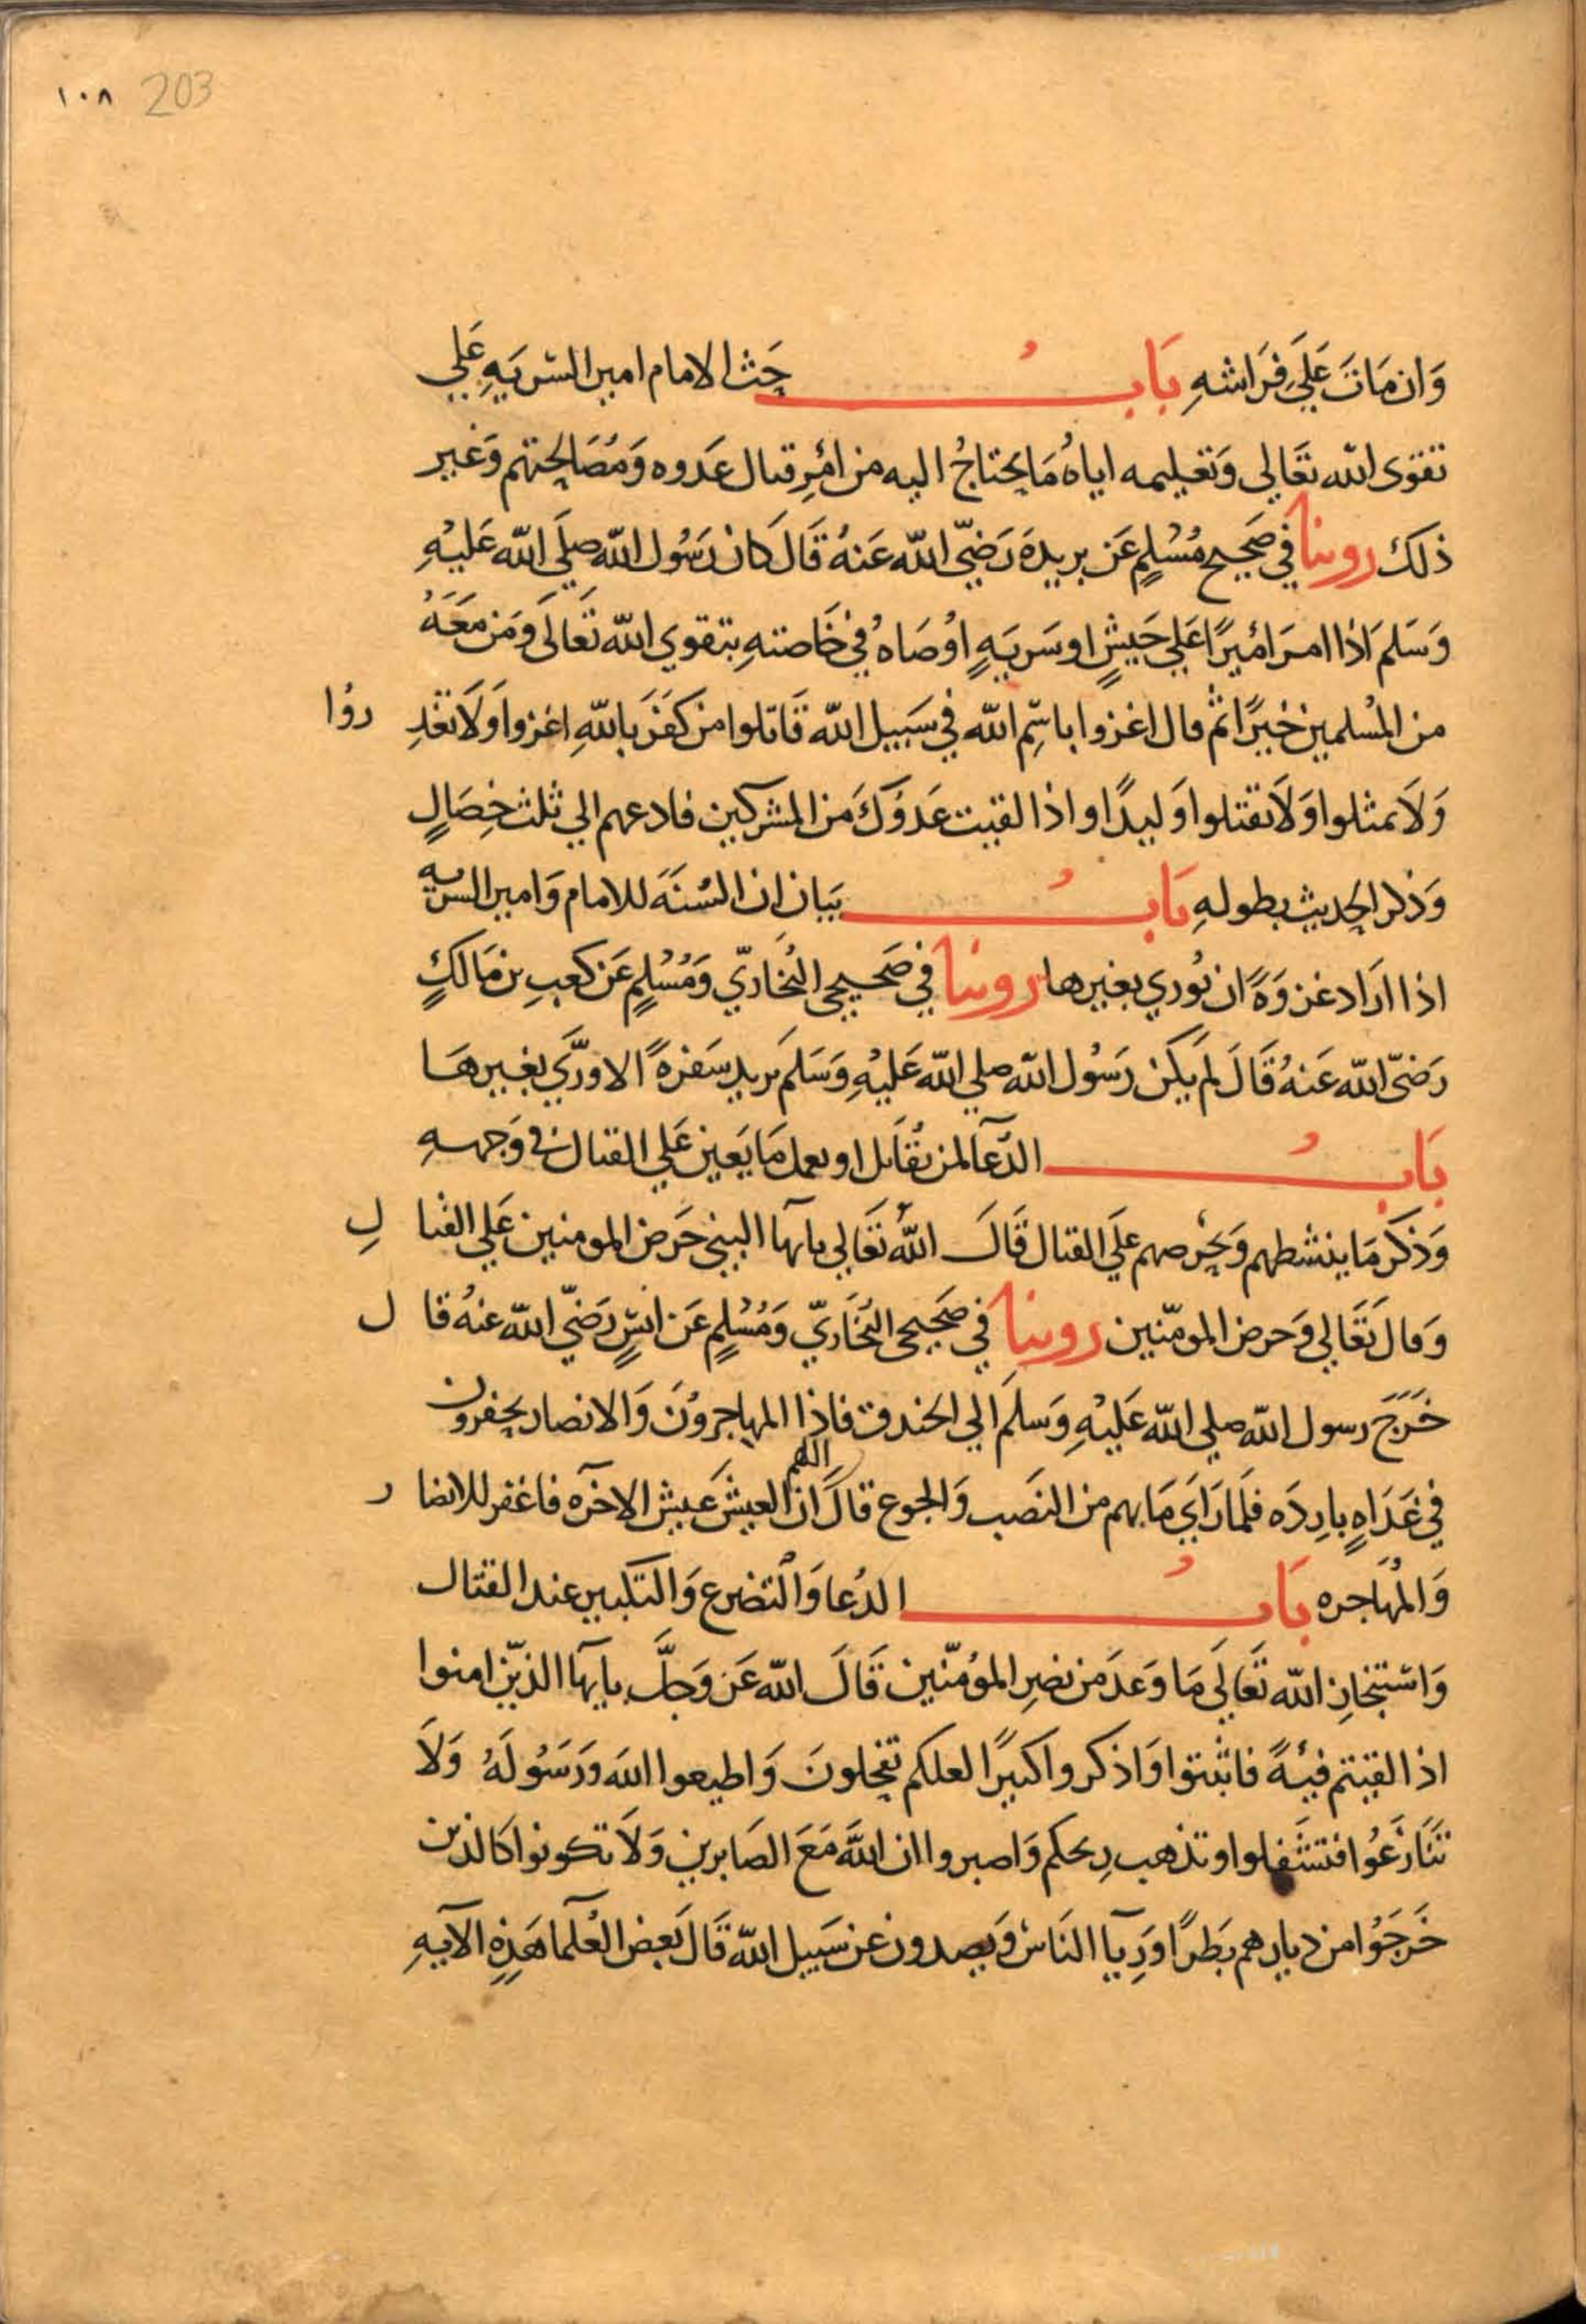 ١٠٨ 203
وَان مَاتَ عَلَي فِرَاشهِ بَابُ حَث الامام امير السّريَهِ عَلي
تقوى الله تعَالى وَتعليمه اياهُ مَا يحتاجُ اليه من امْرِ قتال عَدوه وَمُصَالحتهم وَغير
ذلك روينا في صَحيح مُسْلمٍ عَن بريدة رَضيَّ الله عَنهُ قَالَ كَان رَسُول الله صلَي الله عَليْهِ
وَسَلمَ اذا امرَ امْيرًا عَلي جَيشٍ او سَريَهٍ اوْصَاهُ في خَاصتهِ بتقوي الله تَعَالَى وَمَن مَعَهُ
من المُسْلمين خيْرًا ثم قال اغزوا باسّمِ الله في سَبيل الله قَاتلوا من كفَرَ باللهِ اغزوا وَلَا تغْدِ روُا
وَلَا تمثلوا وَلَا تقتلوا وَليدًا واذا لقيت عَدوُكَ مَن المشركين فادعهم الي ثلث خِصَالٍ
وَذكر الحديث بطولهِ بَابُ بيَان ان السُنَةَ للامام وَامير السريه
اذا ارَاد غزوَةً ان يُوري بغيرها روينا في صَحيحي البُخَاريّ وَمُسْلمٍ عَن كعبِ بن مَالكٍ
رَضيَّ الله عَنهُ قَالَ لمَ يَكن رَسُول الله صلي الله عَليْهِ وَسَلمَ يريد سَفرهً الا ورَّي بغيرهَا
بَابُ الدُعآ لمن يُقَاتل او يعمل مَا يَعين عَلي القتال في وَجههِ
وَذكرَ مَا ينشطهم وَيحْرصهم علَي القتال قَالَ اللهُ تعَالي يايها النبي حَرض المومنين عَلي القتا لِ
وَقالَ تعَالي وَحرض المومّنين روينا في صَحيحي البُخَاريّ وَمُسْلمٍ عَن انسٍ رَضيَّ الله عنهُ قا ل
خَرَجَ رسول الله صلي الله عَليْهِ وَسلمَ الي الخندق فاذا المهاجروُنَ وَالانصار يحفرون
في غَدَاهٍ بارِدَه فلمَا رَايَ مَا بهم من النصَب وَالجوع قالَ اللهم ان العيشَ عَيش الاخرَه فاغفر للانصا ر
وَالمُهَاجره بَابُ الدُعا وَالتضرع وَالتكبير عند القتال
وَاسْتنجَازِ الله تعَالَى مَا وَعدَ من نصرِ الموُمّنين قَالَ الله عَز وَجلَّ يايها الذّين امنوا
اذا لقيتم فيهً فاثبتوا وَاذكروا كثيرًا لعلكم تفحلونَ وَاطيعوا اللهَ وَرَسُولَهُ وَلَا
تَنَازَعُوا فتشَفلوا وتذهب رِيحكم وَاصبروا ان اللهَ مَعَ الصَابرين وَلَا تكونوا كَالذين
خَرجَوُا من ديارهم بَطرًا وَرِيآ النَاس وَيصدون عن سَبيل الله قَالَ بَعض العُلَما هَذِهِ الآيهِ